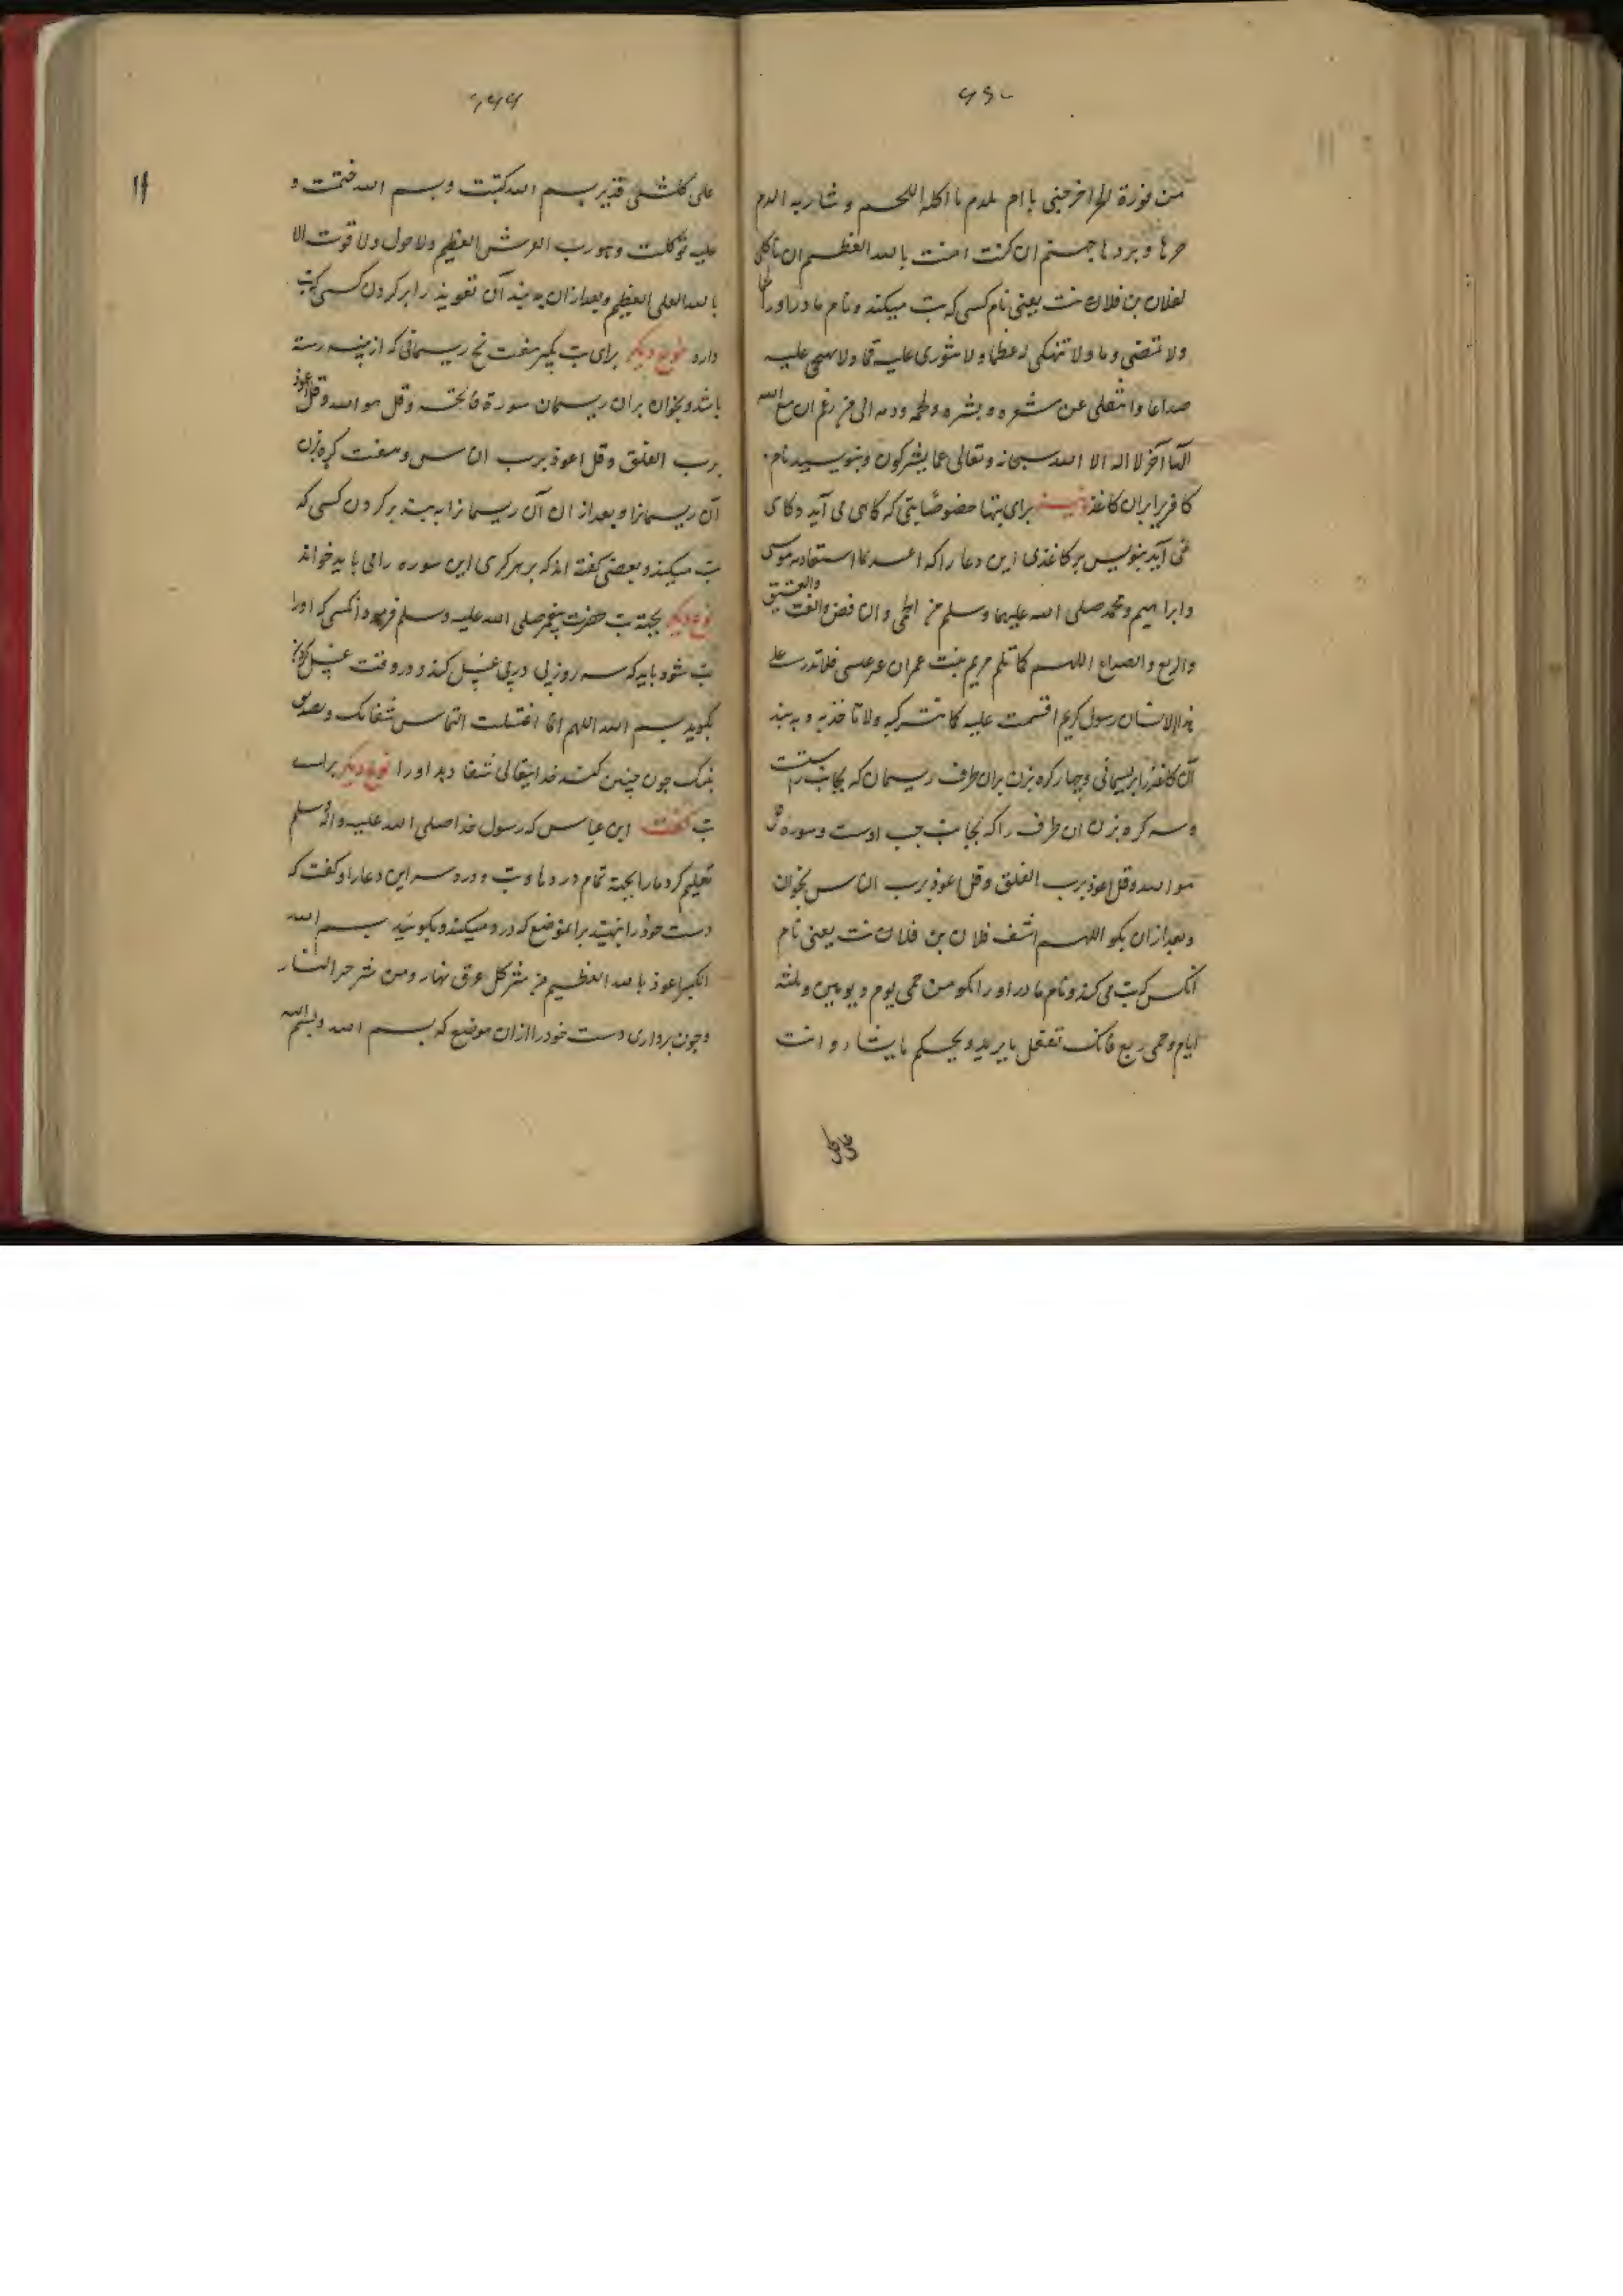 من فورة الحر اخرجنی یا ام ملدم یا اکلة اللحم و شاربه الدم
حرها و بردها جهنم ان کنت امنت بالله العظیم ان تاکلی
لفلان بن فلان نت یعنی نام کسی که تب میکند و نام مادر او را لحما
ولا تمصی دما ولا تنهکی له عظما ولا تثوری علیه غما ولا تهیجی علیه
صداعا وانتقلی عن شعره و بشره و لحمه و دمه الی من زعم ان مع الله
الها آخر لا اله الا الله سبحانه وتعالی عما یشرکون و بنویسید نام
کافر بر ان کاغذ برای تبها خصوصا تبی که کاهی می آید و کاهی
نمی آید بنویس بر کاغذی این دعا را که استعاذ موسی
وابراهیم ومحمد صلی الله علیهما وسلم من الحمی والنافض والعتیق
والربع والصداع اللهم کما تلم مریم بنت عمران عیسی
رسول کریم اقسمت علیه ولا تاخذیه و به بند
آن کاغذ را بریسمانی و چهار کره بزن بران طرف ریسمان که بجانب راست
وسه کره بزن ان طرف را که بجانب چپ اوست و سوره قل
هو الله وقل اعوذ برب الفلق وقل اعوذ برب الناس بخوان
وبعد ازان بکو اللهم اشف فلان بن فلان نت یعنی نام
انکس که تب می کند و نام مادر او را بکو من حمی یوم ویومین وثلثه
ایام وحمی ربع فانک تفعل ما یرید ویحکم ما یشاء و انت
علی کلشی قدیر بسم الله کتبت وبسم الله ختمت و
علیه توکلت وهو رب العرش العظیم ولا حول ولا قوت الا
بالله العلی العظیم وبعد ازان به بند آن تعویذ را بر کردن کسی که تب
دارد نوع دیکر برای تب بکیر هفت نخ ریسمانی که از پنبه رسته
باشد و بخوان بران ریسمان سورة فاتحه وقل هو الله وقل اعوذ
برب الفلق وقل اعوذ برب الناس وهفت کره بزن
آن ریسمانرا وبعد از ان آن ریسمانرا به بند بر کردن کسی که
تب میکند وبعضی کفته اند که بر هر کرهی این سوره را می باید خواند
نوع دیکر بجهة تب حضرت پیغمبر صلی الله علیه وسلم فرمود آنکسی که او را
تب شود باید که سه روز پی در پی غسل کند و در وقت غسل کردن
بکوید بسم الله اللهم انما اغتسلت التماس شفائک وتصدیق
نبیک چون چنین کند خدایتعالی شفا دهد او را نوع دیکر برای
تب کفت ابن عباس که رسول خدا صلی الله علیه واله وسلم
تعلیم کرد مارا بجهة تمام دردها و تب و درد سر این دعا را و کفت که
دست خود را بنهید برانموضع که درد میکند و بکوئید بسم الله
الکبیر اعوذ بالله العظیم من شر کل عرق نعار ومن شر حر النار
وچون برداری دست خود را ازان موضع که بسم الله وبسم الله